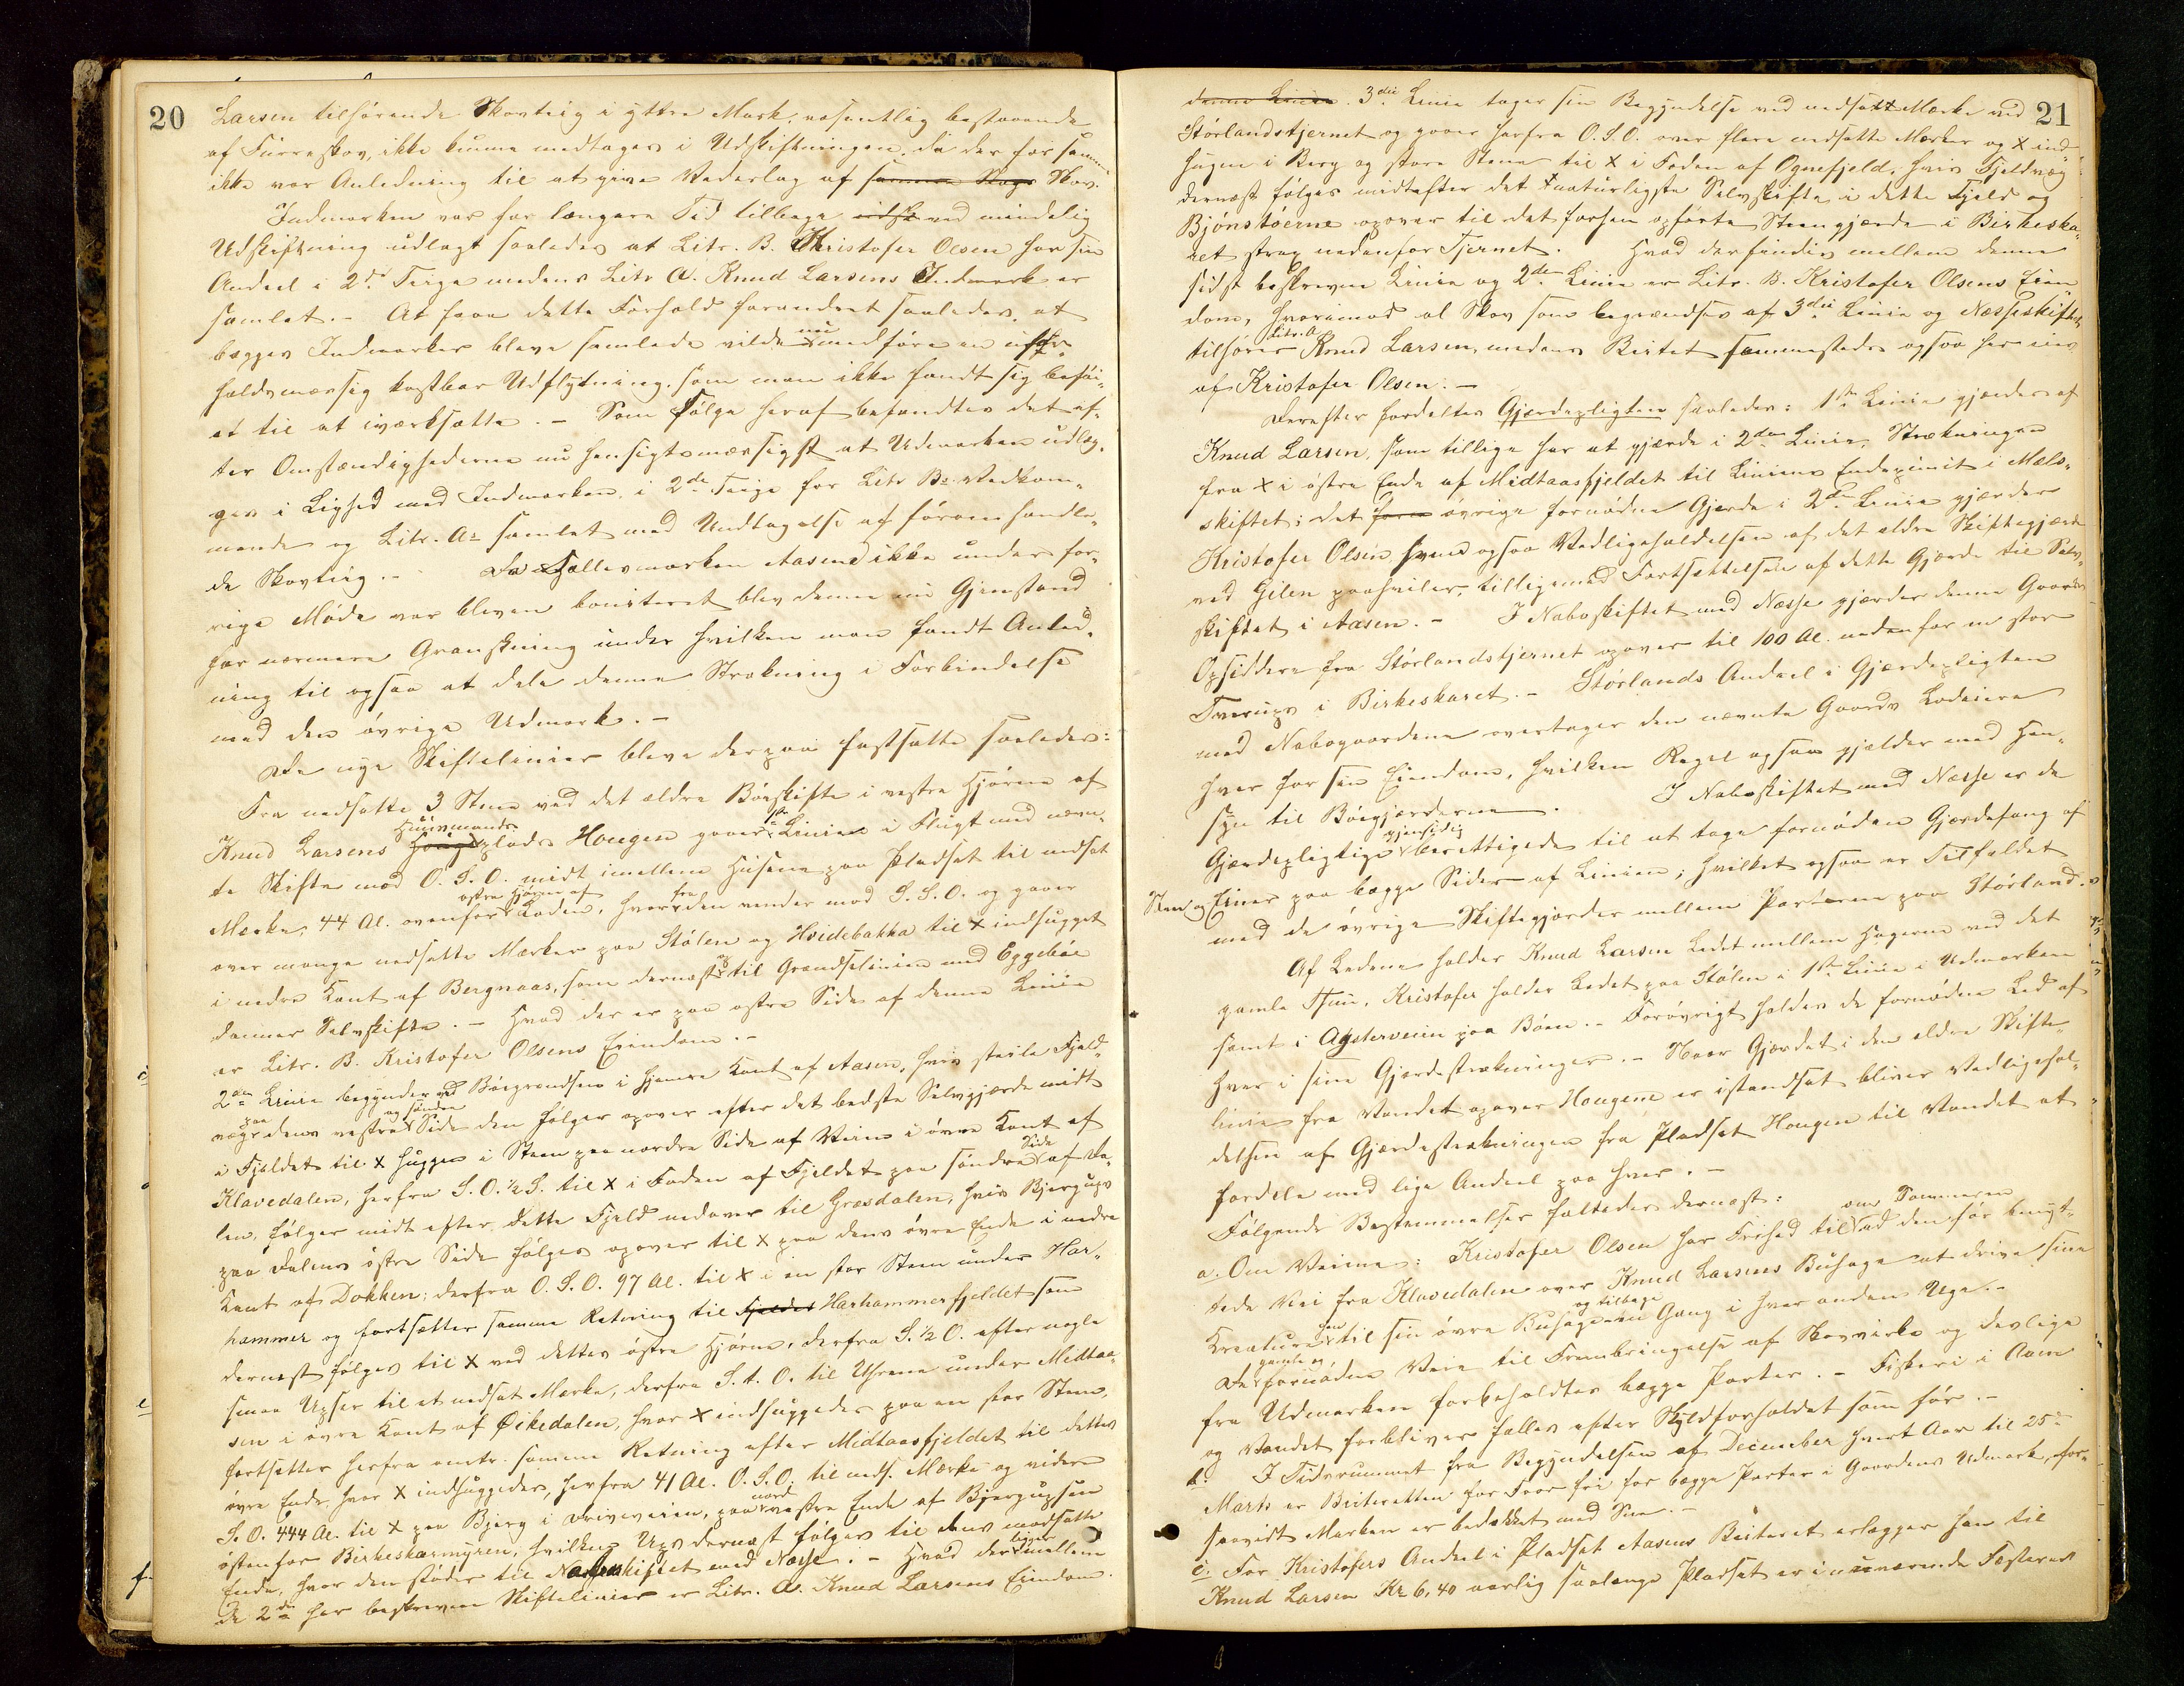 20
Larsen tilhørende Skovteig i yttre Mark, væsentlig bestaaende
af Furreskov, ikke kunne medtages i Udskiftningen, da der for samme
ikke var Anledning til at give Vederlag af samme Slags Skov.
Indmarken var for længere Tid tilbage udsk ved mindelig
Udskiftning udlagt saaledes at Litr. B. Kristofer Olsen har sin
Andeel i 2de Teige medens Litr A. Knud Larsens Indmark er
samlet. - At faae dette Forhold forandret saaledes, at
begges Indmarker bleve samlede vilde nu medføre en ufor-
holdsmæssig kostbar Udflytning, som man ikke fandt sig beføi-
et til at iværksætte. - Som Følge heraf befandtes det ef-
ter Omstændighederne nu hensigtsmæssigst at Udmarken udlæg-
ges i Lighed med Indmarken, i 2de Teige for Litr Bs Vedkom-
mende og Litr. As samlet med Undtagelse af føromhandle-
de Skovteig. - Da Fællesmarken Aasene ikke under for-
rige Møde var bleven boniteret blev denne nu Gjenstand
for nærmere Granskning under hvilken man fandt Anled-
ning til ogsaa at dele denne Strækning i Forbindelse
med den øvrige Udmark. -
De nye Skiftelinier bleve derpaa fastsatte saaledes:
Fra nedsatte 3 Stene ved det ældre Bøeskifte i vestre Hjørne af
Knud Larsens Huusmands plads Hougen gaaer 1ste Linie i Flugt med nævn-
te Skifte mod O. S. O. midt imellem Husene paa Pladset til nedsat
Mærke, 44 Al. ovenfor østre Hjørne af Laden, hvorfra den vender mod S. S. O. og gaaer
over mange nedsatte Mærker paa Stølen og Hvidebakka til X indhugget
i nedre Kant af Bergnaas, som dernæst op til Grændselinien med Eggebøe
danner Selvskifte. - Hvad der er paa østre Side af denne Linie
er Litr. B. Kristofer Olsens Eiendom. -
2den Linie begynder ved Bøegrændsen i hjemre Kant af Aasen, hvis steile Fjeld-
væg paa dens vestre og søndre Side den følger opover efter det bedste Selvgjærde midt
i Fjeldet til X huggen i Steen paa nordre Side af Veien i øvre Kant af
Klavedalen, herfra S. O. ½ S. til X i Foden af Fjeldet paa søndre Side af Da-
len, følger midt efter dette Fjeld nedover til Græsdalen, hvis Bjergups
paa Dalens østre Side følges opover til X paa dens øvre Ende i nedre
Kant af Dokken; derfra O. S. O. 97 Al. til X i en stor Steen under Har-
hammer og fortsætter samme Retning til Fjeldet Harhammerfjeldet som
dernæst følges til X ved dettes østre Hjørne, derfra S. ½ O. efter nogle
smaa Upser til et nedsat Mærke, derfra S. t. O. til Uhrene under Midtaa-
sen i øvre Kant af Øikedalen, hvor X indhuggedes paa en stor Steen,
fortsætter herfra omtr. samme Retning efter Midtaasfjeldet til dettes
øvre Ende, hvor X indhuggedes, herfra 41 Al. O. S. O. til neds. Mærke og videre
S. O. 444 Al. til X paa Bjerg i Driveveien, paa nordvestre Ende af Bjergupsen
østenfor Birkeskarmyren, hvilken Ups dernæst følges til dens modsatte
Ende, hvor den støder til Naboskiftet med Næsse. - Hvad der ligger mellem
de 2de her beskrevne Skiftelinier er Litr. A. Knud Larsens Eiendom.
21
denne Linie. 3die Linie tager sin Begyndelse ved nedsatt Mærke ved
Størlandstjernet og gaaer herfra O. S. O. over flere nedsatte Mærker og X ind-
hugne i Berg og store Stene til X i Foden af Ognefjeld, hvis Fjeldvæg
dernæst følges midtefter det naturligste Selvskifte i dette Fjeld og
Bjønstøerne opover til det forhen opførte Steengjærde i Birkeska-
ret strax nedenfor Tjernet. Hvad der findes mellem denne
sidst beskrevne Linie og 2den Linie er Litr. B. Kristofer Olsens Eien-
dom, hvorimod al Skov som begrændses af 3die Linie og Næsseskiftet
tilhører Litr. A Knud Larsen, medens Beitet sammesteds ogsaa her eies
af Kristofer Olsen. -
Derefter fordeltes Gjærdepligten saaledes: 1ste Linie gjærdes af
Knud Larsen, som tillige har at gjærde i 2den Linie, Strækningen
fra X i østre Ende af Midtaasfjeldet til Liniens Endepunkt i Næs-
skiftet; det øvrige fornødne Gjærde i 2den Linie gjærder
Kristofer Olsen hvem ogsaa Vedligeholdelsen af det ældre Skiftegjærde
ved Gilen paahviler, tilligemed Fortsættelsen af dette Gjærde til Selv-
skiftet i Aasen. - I Naboskiftet med Næsse gjærder denne Gaards
Opsiddere fra Størlandstjernet opover til 100 Al. nedenfor en stor
Tverups i Birkeskaret. - Størlands Andeel i Gjærdepligten
med Nabogaardene overtager den nævnte Gaards Lodeiere
hver for sin Eiendom, hvilken Regel ogsaa gjælder med Hen-
syn til Bøegjærderne. I Naboskiftet med Næsse er de
Gjærdepligtige gjensidig berettigede til at tage fornøden Gjærdefang af
Steen og Einer paa begge Sider af Linien; hvilket ogsaa er Tilfældet
med de øvrige Skiftegjærder mellem Parterne paa Størland.
Af Ledene holder Knud Larsen Ledet mellem Hagerne ved det
gamle Thun, Kristofer holder Ledet paa Stølen i 1ste Linie i Udmarken
samt i Agsterveien paa Bøen. - Forøvrigt holdes de fornødne Led af
hver i sine Gjærdestrækninger. - Naar Gjærdet i den ældre Skifte-
linie fra Vandet opover Hougene er istandsat bliver Vedligehol-
delsen af Gjærdestrækningen fra Pladset Hougen til Vandet at
fordele med lige Andeel paa hver. -
Følgende Bestemmelser fattedes dernæst:
a. Om Veiene: Kristofer Olsen har Frihed til om Sommeren ad den før benyt-
tede Vei fra Klavedalen over Knud Larsens Buhage at drive sine
Kreature frem til sin øvre Buhage og tilbage en Gang i hver anden Uge. -
De gamle og fornødne Veie til Frembringelse af Skovvirke og deslige
fra Udmarken forbeholdtes begge Parter. - Fiskeri i Aaen
og Vandet forbliver fælles efter Skyldforholdet som før. -
b. I Tidsrummet fra Begyndelsen af December hvert Aar til 25de
Marts er Beiteretten for Faar fri for begge Parter i Gaardens Udmark, for-
saavidt Marken er bedækket med Sne. -
c. For Kristofers Andeel i Pladset Aasens Beiteret erlægger han til
Knud Larsen Kr 6,40 aarlig saalænge Pladset er i nuværende Fæsteres